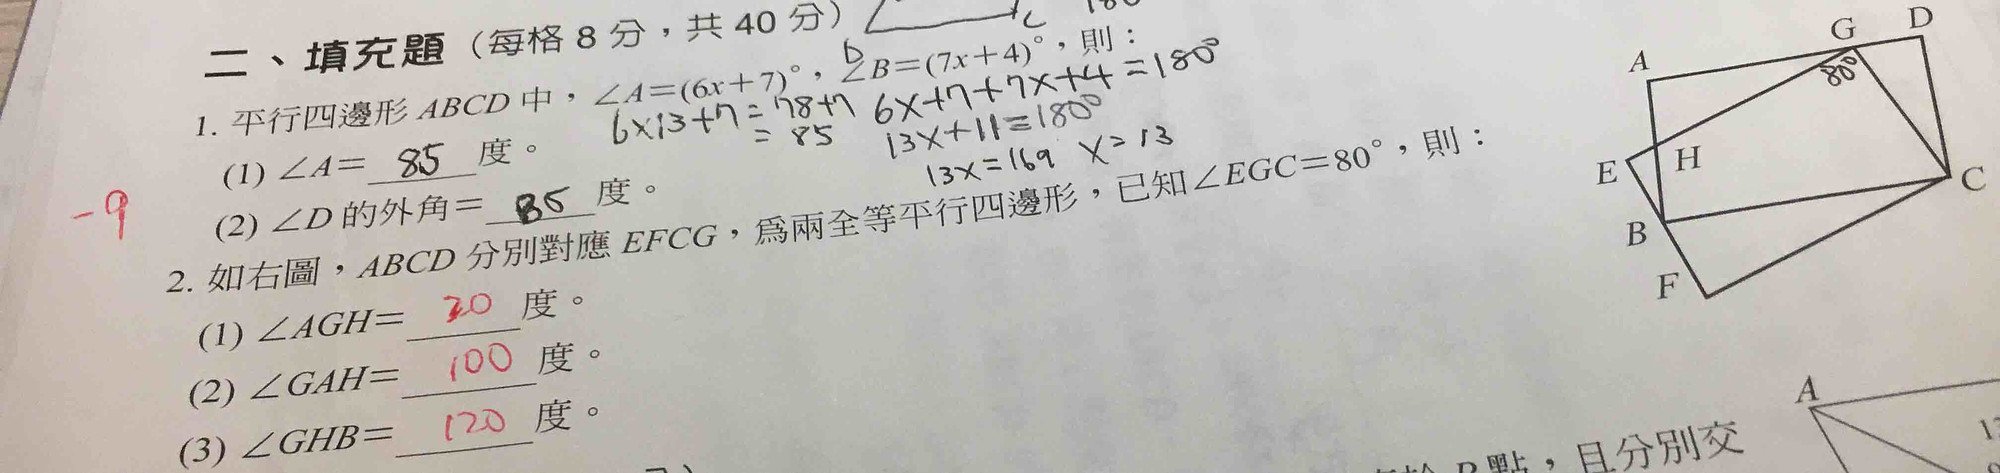 二、填充題（每格 8 分，共 40 分）
1. 平行四邊形 ABCD 中，∠A＝(6x＋7)°，∠B＝(7x＋4)°，則：
6x13+7=78+7
=85
6x+7+7x+4=180°
13x+11=180°
13x=169 x=13
(1) ∠A＝ 85 度。
-9
(2) ∠D 的外角＝ 85 度。
2. 如右圖，ABCD 分別對應 EFCG，爲兩全等平行四邊形，已知∠EGC＝80°，則：
(1) ∠AGH＝ 20 度。
(2) ∠GAH＝ 100 度。
(3) ∠GHB＝ 120 度。
A
G
D
80°
E
H
C
B
F
A
點，且分別交